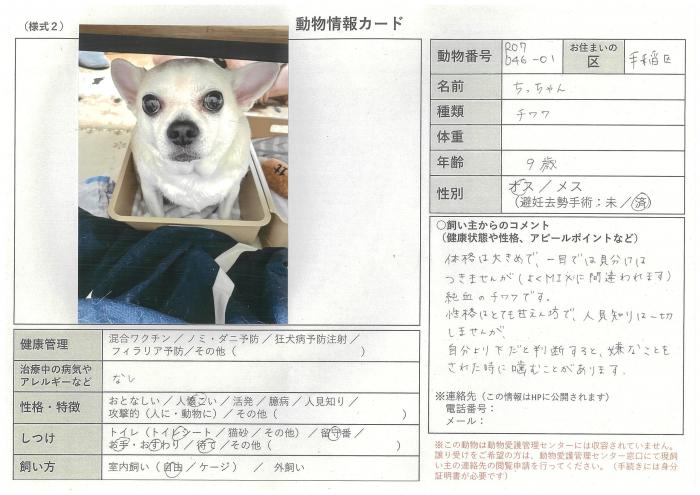 （様式２）
動物情報カード
動物番号 R07 046-01 お住まいの区 手稲区
名前 ちっちゃん
種類 チワワ
体重
年齢 9歳
性別 オス／メス
（避妊去勢手術：未／済）
○飼い主からのコメント
（健康状態や性格、アピールポイントなど）
体格は大きめで、一目では見分けは
つきませんが（よくMIXに間違われます）
純血のチワワです。
性格はとても甘えん坊で、人見知りは一切
しませんが、
自分より下だと判断すると、嫌なことを
された時に噛むことがあります。
※連絡先（この情報はHPに公開されます）
電話番号：
メール：
健康管理 混合ワクチン／ノミ・ダニ予防／狂犬病予防注射／
フィラリア予防／その他（　　）
治療中の病気や
アレルギーなど なし
性格・特徴 おとなしい／人懐こい／活発／臆病／人見知り／
攻撃的（人に・動物に）／その他（　　）
しつけ トイレ（トイレシート／猫砂／その他）／留守番／
お手・おすわり／待て／その他（　　）
飼い方 室内飼い（自由／ケージ）　／　外飼い
※この動物は動物愛護管理センターには収容されていません。
譲り受けをご希望の方は、動物愛護管理センター窓口にて現飼
い主の連絡先の閲覧申請を行ってください。（手続きには身分
証明書が必要です）